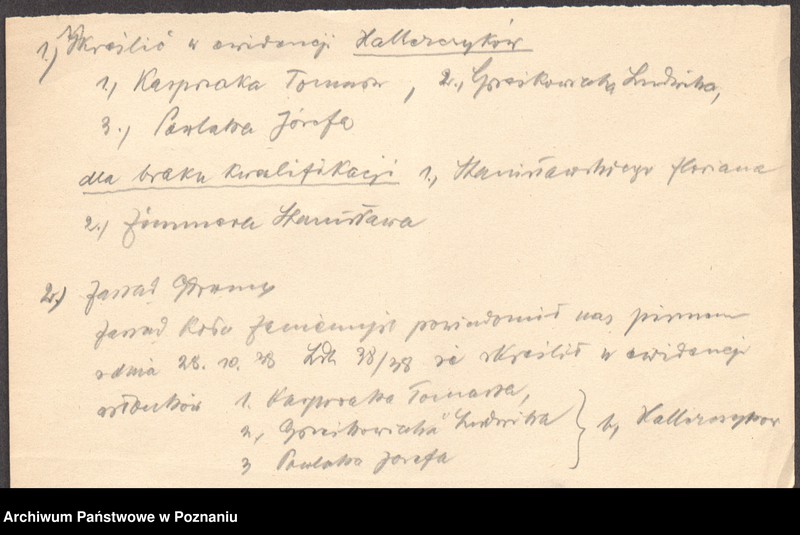 1.) Skreślić w ewidencji Hallerczyków
1., Kasprzaka Tomasza, 2., Ludwika,
3., Pawlaka Józefa
dla braku kwalifikacji 1., Stanisławskiego Floriana
2., Zimmera Stanisława
2.) Zarząd Okręgu
Zarząd Koła powiadomił nas pismem
z dnia 28. 10. 38 L.dz. 38/38 że skreślił w ewidencji
członków 1. Kasprzaka Tomasza,
2., Ludwika
3 Pawlaka Józefa
b., Hallerczyków
Archiwum Państwowe w Poznaniu